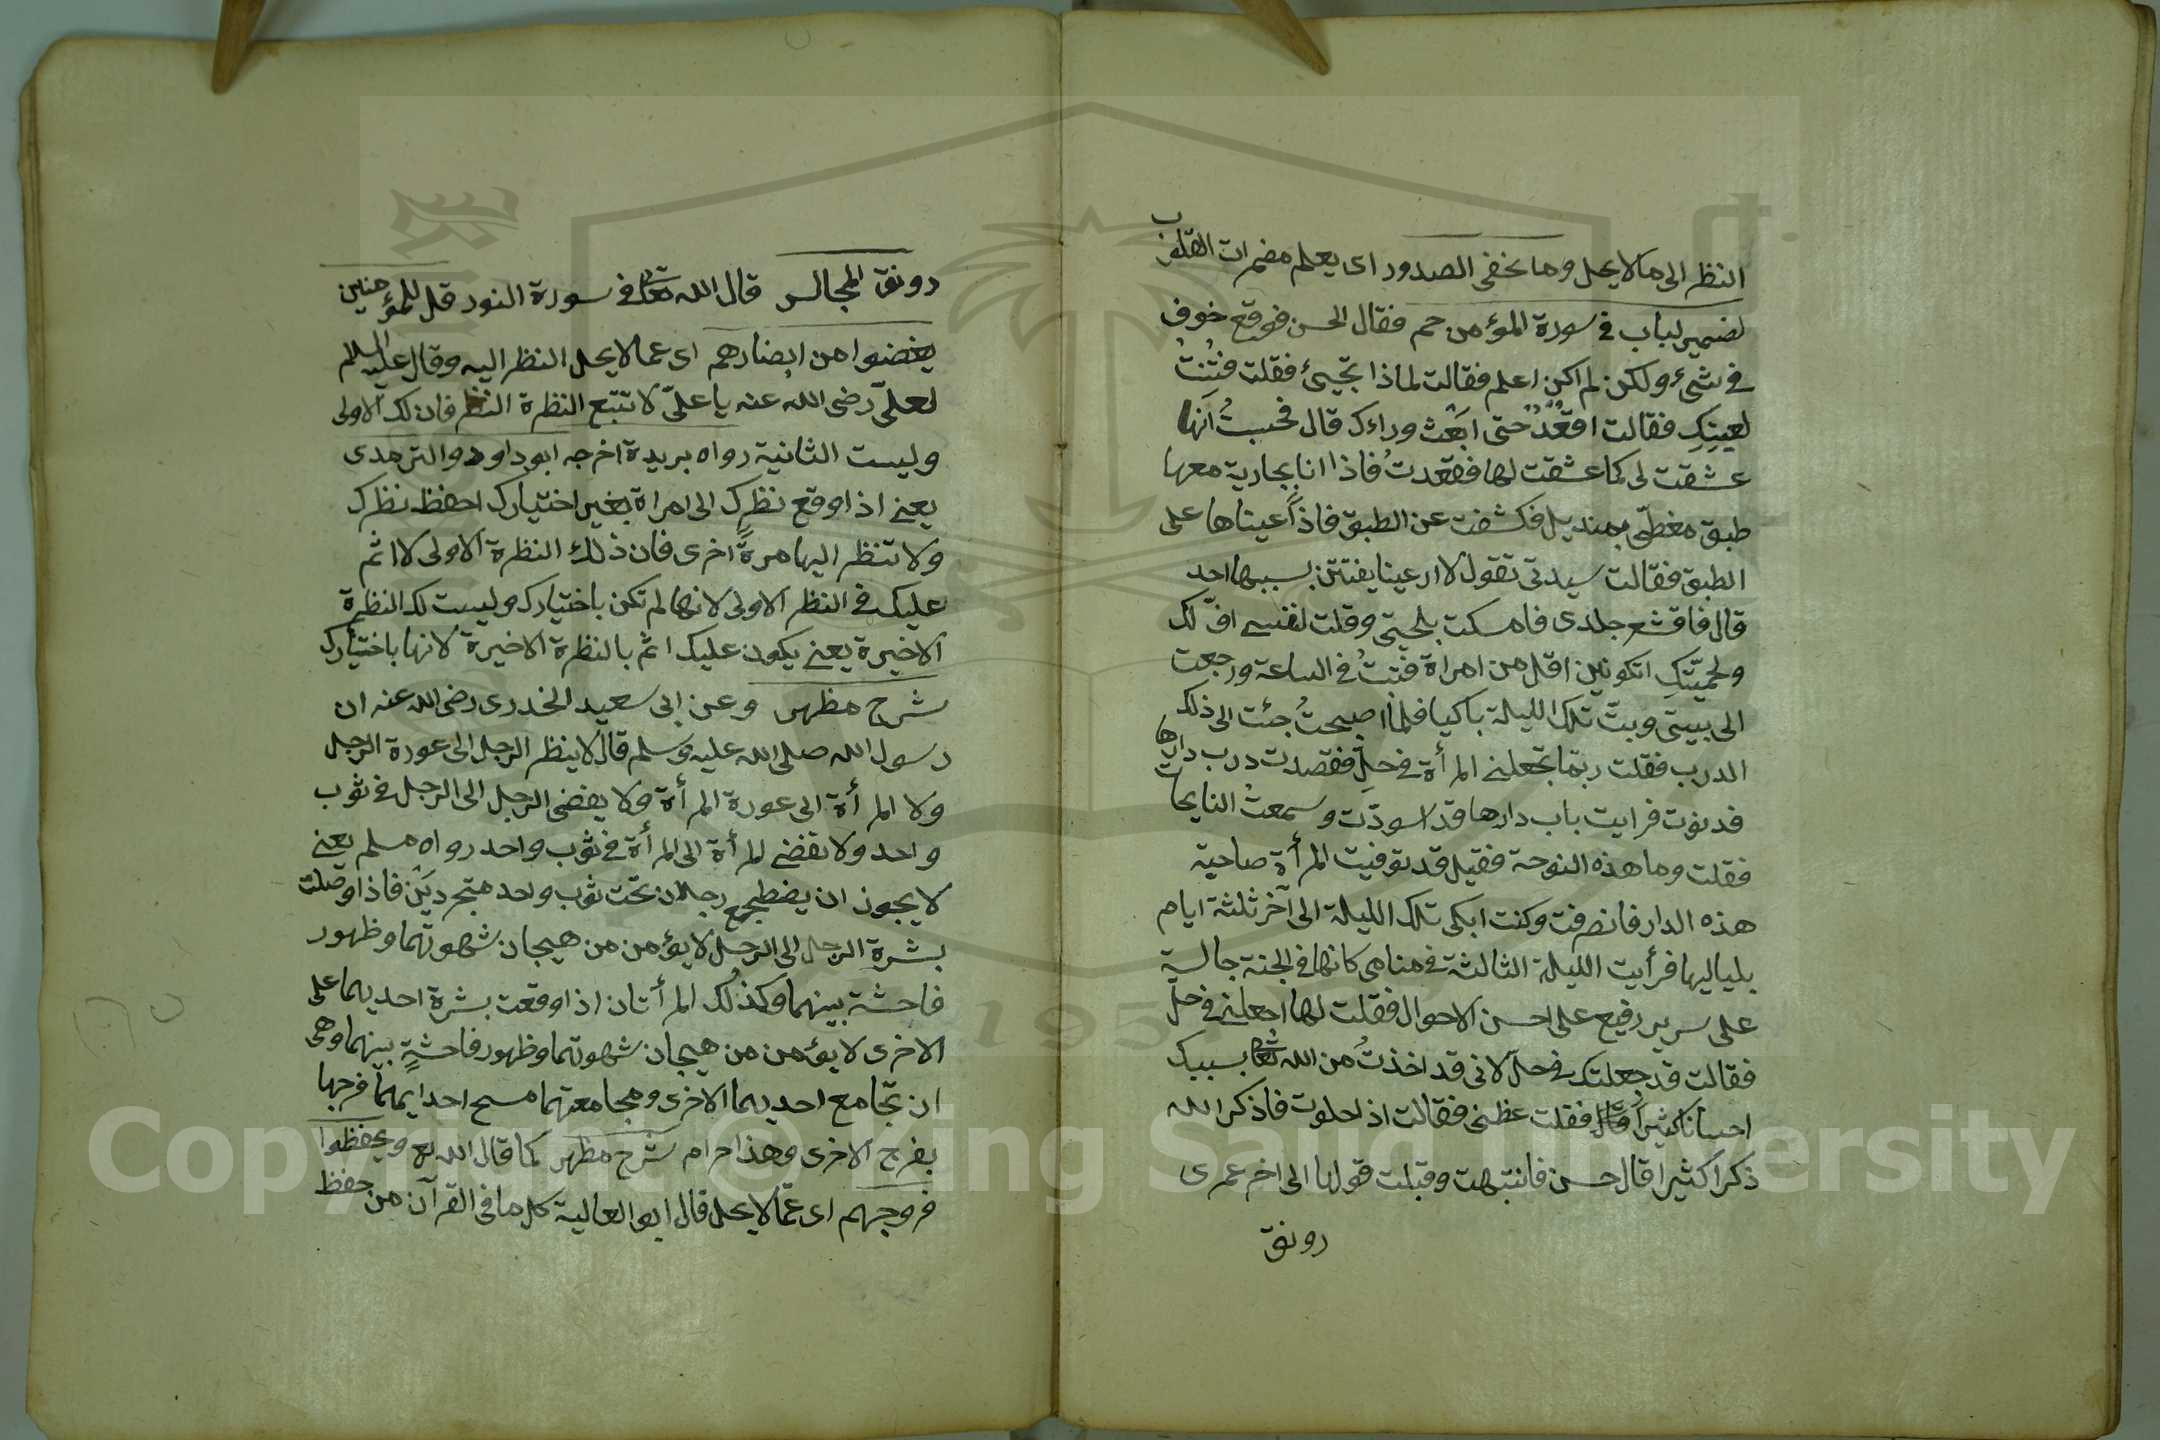 النظر الى مالايحل وما تخفى الصدور اى يعلم مضمرات القلوب
لضمير لباب فى سورة المؤمن حم فقال الحسن فوقع خوف
فى شئ ولكن لم اكن اعلم فقالت لماذا تجيئ فقلت فتنت
لعينك فقالت اقعد حتى ابعث وراءك قال فحسبت انها
عشقت لى كما عشقت لها فقعدت فاذا انا بجارية معها
طبق مغطى بمنديل فكشفت عن الطبق فاذا عيناها على
الطبق فقالت سيدتى تقول لا اريد عينا يفتتن بسببها احد
قال فاقشعر جلدى فامسكت بلحيتى وقلت لنفسى اف لك
ولحيتك اتكونين اقل من امراة فتبت فى الساعة ورجعت
الى بيتى وبت تلك الليلة باكيا فلما اصبحت جئت الى ذلك
الدرب فقلت ربما تجعلنى المرأة فى حل فقصدت درب دارها
فدنوت فرايت باب دارها قد اسودت وسمعت النايحات
فقلت وما هذه النوحة فقيل قد توفيت المرأة صاحبة
هذه الدار فانصرفت وكنت ابكى تلك الليلة الى آخر ثلثة ايام
بلياليها فرأيت الليلة الثالثة فى منامى كانها فى الجنة جالسة
على سرير رفيع على احسن الاحوال فقلت لها اجعلنى فى حل
فقالت قد جعلتك فى حل لانى قد اخذت من الله تعالى بسببك
احسانا كثيرا قال فقلت عظنى فقالت اذا خلوت فاذكر الله
ذكرا كثيرا قال حسن فانتبهت وقبلت قولها الى اخر عمرى
رونق
رونق المجالس قال الله تعالى فى سورة النور قل للمؤمنين
يغضوا من ابصارهم اى عما لا يحل النظر اليه وقال عليه السلام
لعلى رضى الله عنه يا على لا تتبع النظرة النظر فان لك الاولى
وليست الثانية رواه بريدة اخرجه ابو داود والترمدى
يعنى اذا وقع نظرك الى امراة بغير اختيارك احفظ نظرك
ولا تنظر اليها مرة اخرى فان ذلك النظرة الاولى لا اثم
عليك فى النظر الاولى لانها لم تكن باختيارك وليست لك النظرة
الاخيرة يعنى يكون عليك اثم بالنظرة الاخيرة لانها باختيارك
شرح مظهر وعن ابى سعيد الخدرى رضى الله عنه ان
رسول الله صلى الله عليه وسلم قال لا ينظر الرجل الى عورة الرجل
ولا المرأة الى عورة المرأة ولا يفضى الرجل الى الرجل فى ثوب
واحد ولا تفضى المرأة الى المرأة فى ثوب واحد رواه مسلم يعنى
لا يجوز ان يضطجع رجلان تحت ثوب واحد متجردين فاذا وصلت
بشرة الرجل الى الرجل لا يؤمن من هيجان شهوتهما وظهور
فاحشة بينهما وكذلك المرأتان اذا وقعت بشرة احديهما على
الاخرى لا يؤمن من هيجان شهوتهما وظهور فاحشة بينهما وهى
ان تجامع احديهما الاخرى ومجامعتهما مسح احدايهما فرجها
بفرج الاخرى وهذا حرام شرح مظهر كما قال الله تع ويحفظوا
فروجهم اى عما لا يحل قال ابو العالية كل ما فى القرآن من حفظ
Copyright © King Saud University
195